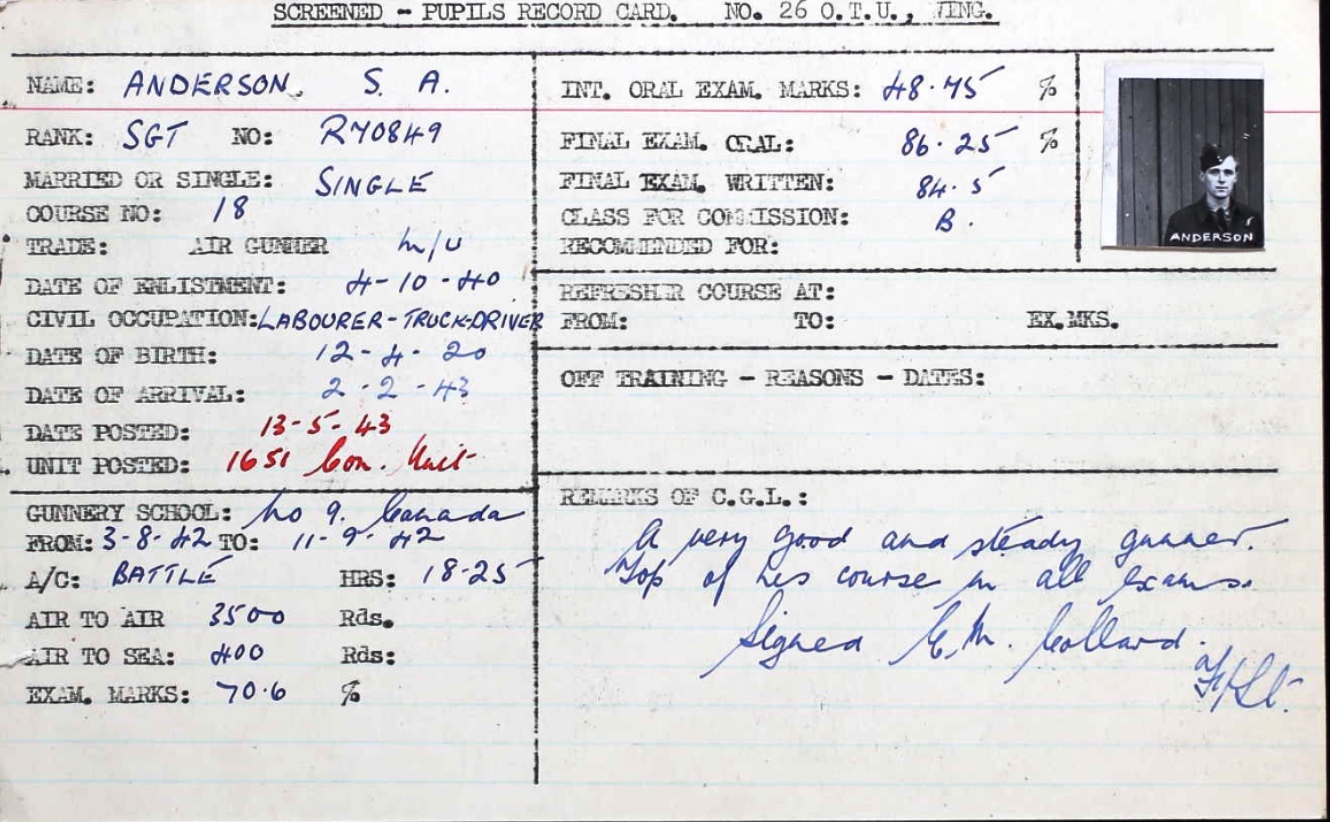 SCREENED - PUPILS RECORD CARD. NO. 26 O.T.U., WING.
NAME: ANDERSON, S. A.
RANK: SGT NO: R70849
MARRIED OR SINGLE: SINGLE
COURSE NO: 18
TRADE: AIR GUNNER M/U
DATE OF ENLISTMENT: 4-10-40
CIVIL OCCUPATION: LABOURER-TRUCK-DRIVER
DATE OF BIRTH: 12-4-20
DATE OF ARRIVAL: 2-2-43
DATE POSTED: 13-5-43
UNIT POSTED: 1651 Con. Unit
GUNNERY SCHOOL: No 9. Canada
FROM: 3-8-42 TO: 11-9-42
A/C: BATTLE HRS: 18-25
AIR TO AIR 3500 Rds.
AIR TO SEA: 400 Rds:
EXAM. MARKS: 70.6 %
INT. ORAL EXAM. MARKS: 48.75 %
FINAL EXAM. ORAL: 86.25 %
FINAL EXAM. WRITTEN: 84.5
CLASS FOR COMMISSION: B.
RECOMMENDED FOR:
ANDERSON
REFRESHER COURSE AT:
FROM: TO: EX.MKS.
OFF TRAINING - REASONS - DATES:
REMARKS OF C.G.L.:
A very good and steady gunner.
Top of his course in all exams.
Signed C.M. Collard.
F/Lt.